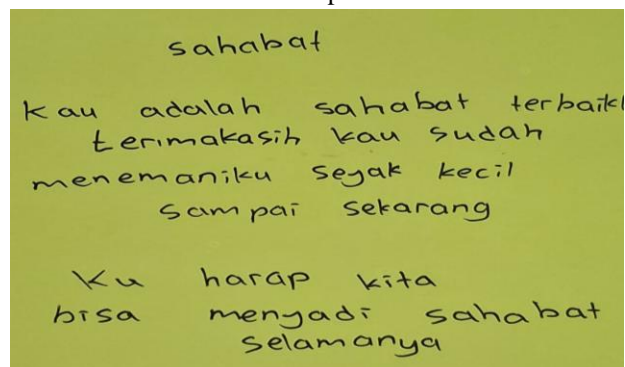 sahabat
Kau adalah sahabat terbaik
terimakasih kau sudah
menemaniku seyak kecil
sampai sekarang
Ku harap kita
bisa menyadi sahabat
selamanya